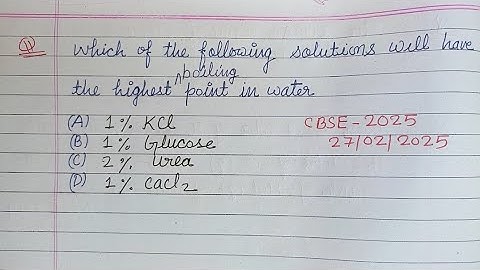 Q which of the following solutions will have
boiling
the highest ^ point in water
(A) 1% KCl
(B) 1% Glucose
(C) 2% Urea
(D) 1% CaCl₂
CBSE - 2025
27/02/2025